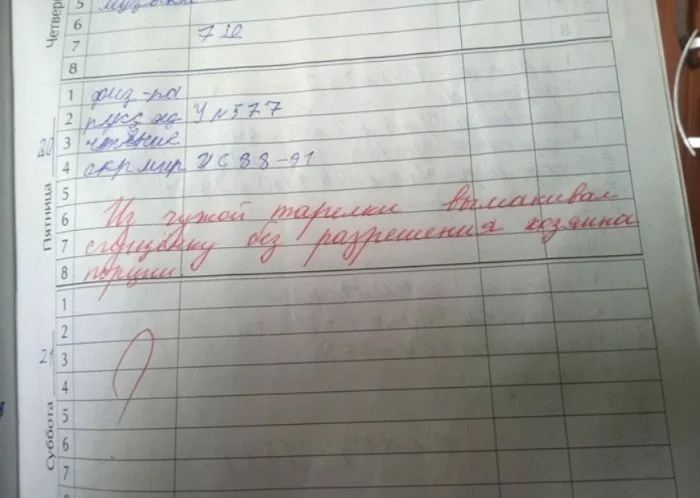 Четверг
5 музыка
6
7 ТЗО
8
20
Пятница
1 физ-ра
2 русс яз У N 577
3 чтение
4 окр мир У С 88-91
5
6 Из чужой тарелки вымакивал
7 сгущёнку без разрешения хозяина
8 порции
21
Суббота
1
2
3
4
5
6
7
8